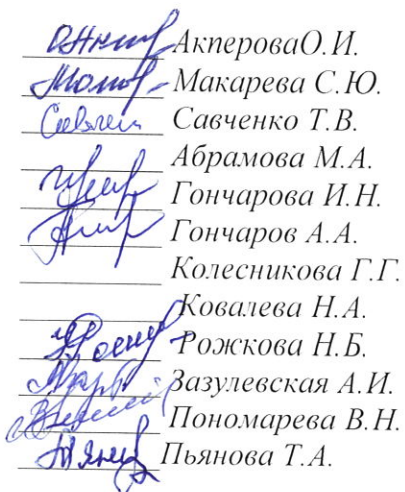 АкпероваО.И.
Макарева С.Ю.
Савченко Т.В.
Абрамова М.А.
Гончарова И.Н.
Гончаров А.А.
Колесникова Г.Г.
Ковалева Н.А.
Рожкова Н.Б.
Зазулевская А.И.
Пономарева В.Н.
Пьянова Т.А.